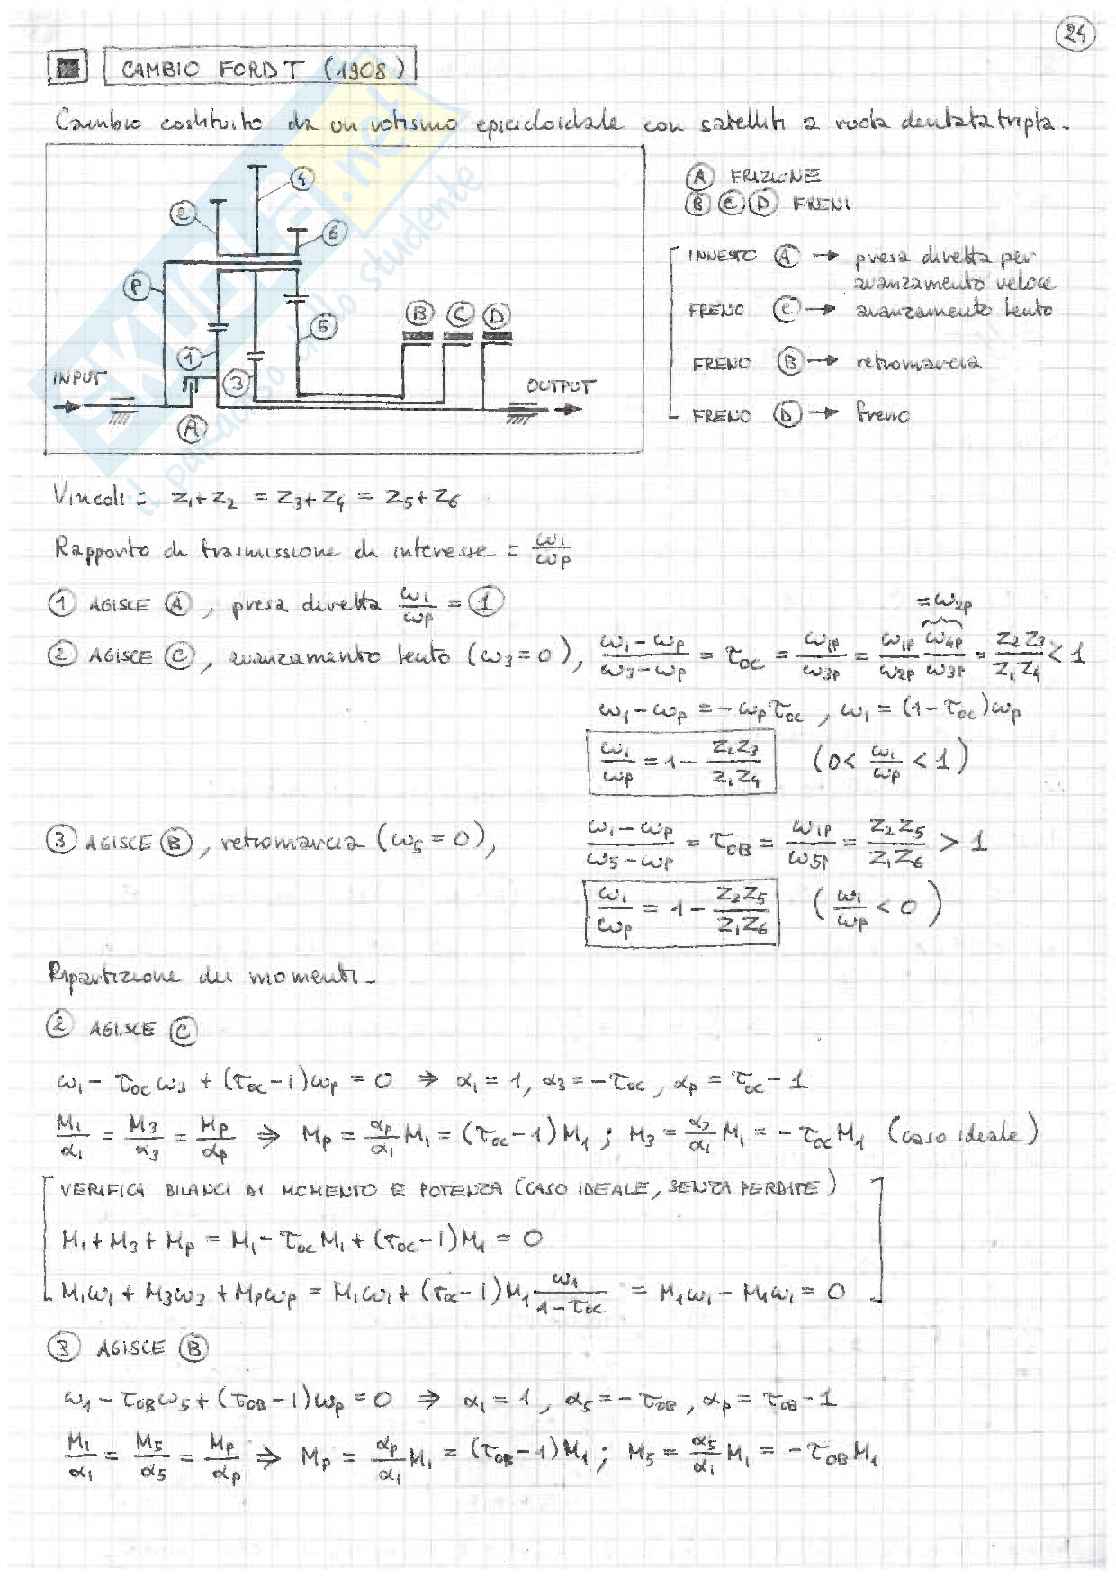 24
CAMBIO FORD T (1908)
Cambio costituito da un rotismo epicicloidale con satelliti a ruota dentata tripla.
A FRIZIONE
B C D FRENI
INNESTO A → presa diretta per
avanzamento veloce
FRENO C → avanzamento lento
FRENO B → retromarcia
FRENO D → freno
4
2
6
P
5
B C D
1
3
INPUT
OUTPUT
A
Vincoli = Z1+Z2 = Z3+Z4 = Z5+Z6
Rapporto di trasmissione di interesse = ω1/ωp
1 AGISCE A, presa diretta ω1/ωp = 1
2 AGISCE C, avanzamento lento (ω3=0), (ω1-ωp)/(ω3-ωp) = τ0C = ω1p/ω3p = ω1p/ω2p ω4p/ω3p = Z2Z3/Z1Z4 < 1
=ω2p
ω1-ωp = -ωpτ0C, ω1 = (1-τ0C)ωp
ω1/ωp = 1 - Z2Z3/Z1Z4 (0 < ω1/ωp < 1)
3 AGISCE B, retromarcia (ω5=0), (ω1-ωp)/(ω5-ωp) = τ0B = ω1p/ω5p = Z2Z5/Z1Z6 > 1
ω1/ωp = 1 - Z2Z5/Z1Z6 (ω1/ωp < 0)
Ripartizione dei momenti.
2 AGISCE C
ω1 - τ0Cω3 + (τ0C-1)ωp = 0 ⇒ α1 = 1, α3 = -τ0C, αp = τ0C-1
M1/α1 = M3/α3 = Mp/αp ⇒ Mp = αp/α1 M1 = (τ0C-1)M1; M3 = α3/α1 M1 = -τ0C M1 (caso ideale)
VERIFICA BILANCI DI MOMENTO E POTENZA (CASO IDEALE, SENZA PERDITE)
M1+M3+Mp = M1-τ0CM1+(τ0C-1)M1 = 0
M1ω1+M3ω3+Mpωp = M1ω1+(τ0C-1)M1 ω1/(1-τ0C) = M1ω1-M1ω1 = 0
3 AGISCE B
ω1-τ0Bω5+(τ0B-1)ωp = 0 ⇒ α1 = 1, α5 = -τ0B, αp = τ0B-1
M1/α1 = M5/α5 = Mp/αp ⇒ Mp = αp/α1 M1 = (τ0B-1)M1; M5 = α5/α1 M1 = -τ0BM1